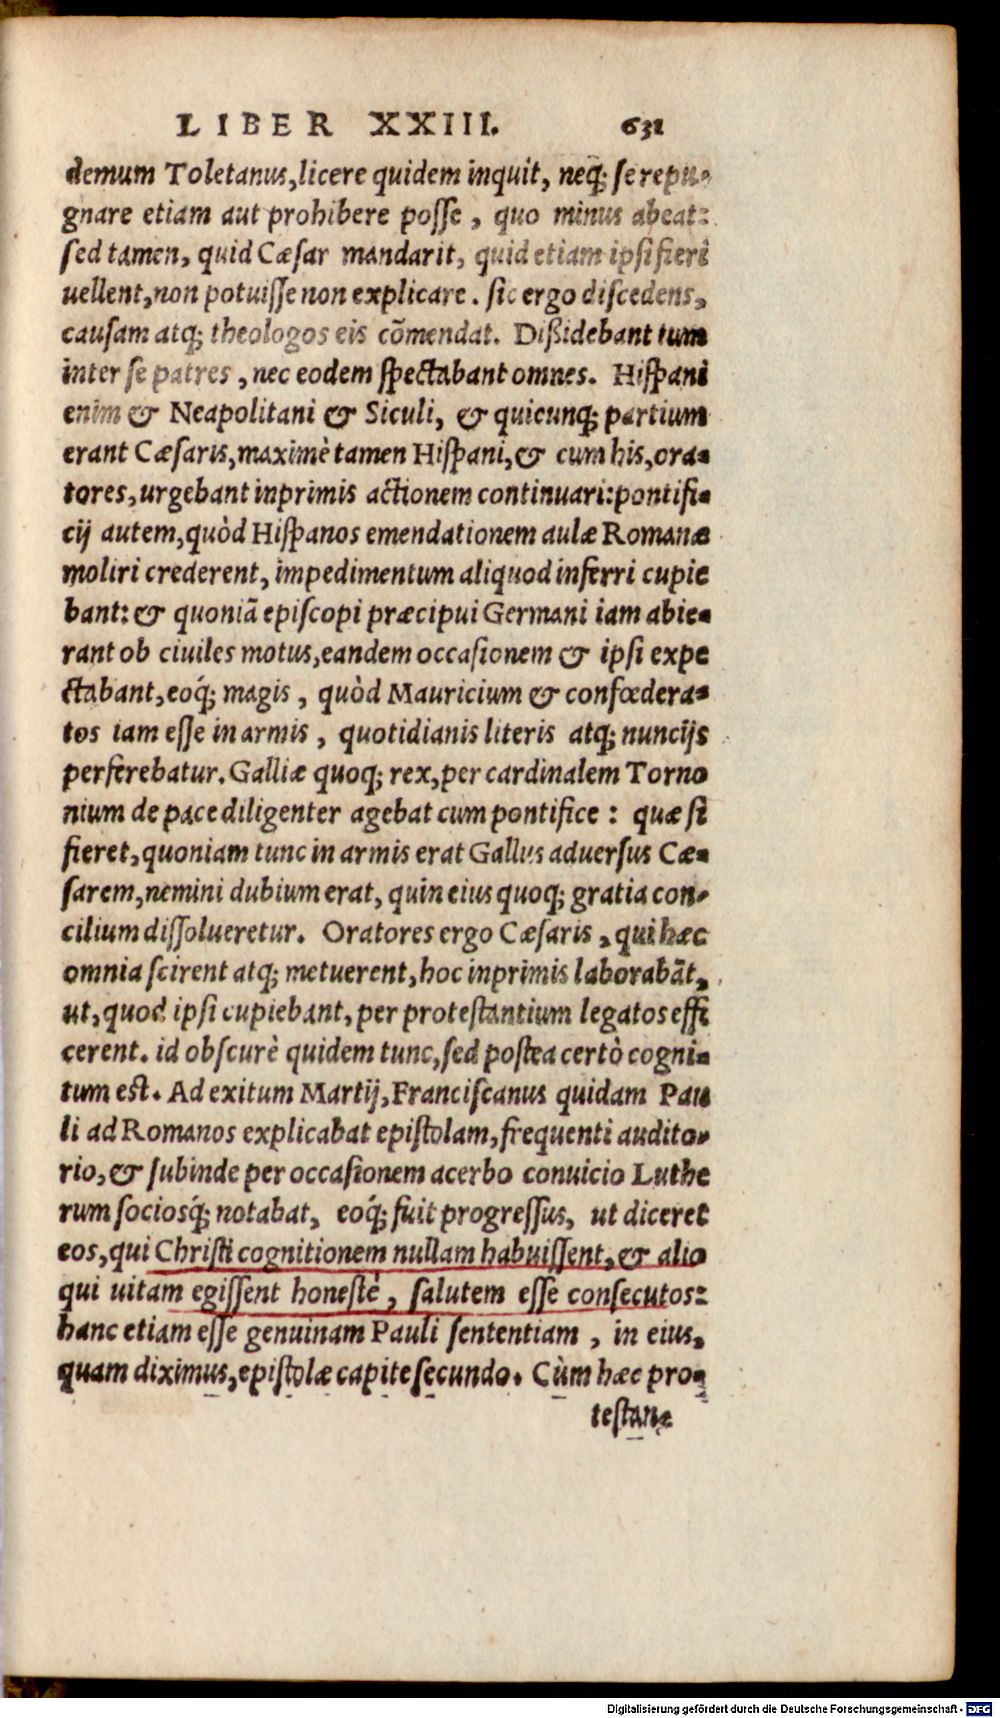 LIBER XXIII. 631
demum Toletanus, licere quidem inquit, neq; se repu-
gnare etiam aut prohibere posse, quo minus abeat:
sed tamen, quid Cæsar mandarit, quid etiam ipsi fieri
uellent, non potuisse non explicare. sic ergo discedens,
causam atq; theologos eis cōmendat. Dißidebant tum
inter se patres, nec eodem spectabant omnes. Hispani
enim & Neapolitani & Siculi, & quicunq; partium
erant Cæsaris, maximè tamen Hispani, & cum his, ora-
tores, urgebant inprimis actionem continuari: pontifi-
cij autem, quòd Hispanos emendationem aulæ Romanæ
moliri crederent, impedimentum aliquod inferri cupie
bant: & quoniā episcopi præcipui Germani iam abie-
rant ob ciuiles motus, eandem occasionem & ipsi expe
ctabant, eoq́; magis, quòd Mauricium & confœdera-
tos iam esse in armis, quotidianis literis atq; nuncijs
perferebatur. Galliæ quoq; rex, per cardinalem Torno
nium de pace diligenter agebat cum pontifice: quæ si
fieret, quoniam tunc in armis erat Gallus aduersus Cæ-
sarem, nemini dubium erat, quin eius quoq; gratia con-
cilium dissolueretur. Oratores ergo Cæsaris, qui hæc
omnia scirent atq; metuerent, hoc inprimis laborabāt,
ut, quod ipsi cupiebant, per protestantium legatos effi
cerent. id obscurè quidem tunc, sed postea certò cogni-
tum est. Ad exitum Martij, Franciscanus quidam Pau
li ad Romanos explicabat epistolam, frequenti audito-
rio, & subinde per occasionem acerbo conuicio Luthe
rum sociosq́; notabat, eoq́; fuit progressus, ut diceret
eos, qui Christi cognitionem nullam habuissent, & alio
qui uitam egissent honestè, salutem esse consecutos:
hanc etiam esse genuinam Pauli sententiam, in eius,
quam diximus, epistolæ capite secundo. Cùm hæc pro-
testan-
Digitalisierung gefördert durch die Deutsche Forschungsgemeinschaft - DFG